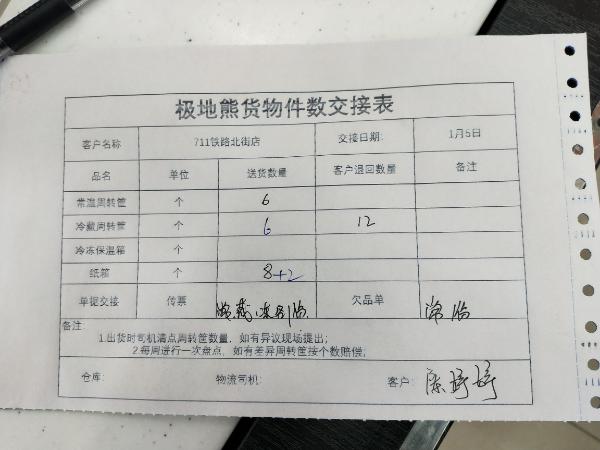 极地熊货物件数交接表
客户名称 711铁路北街店 交接日期: 1月5日
品名 单位 送货数量 客户退回数量 备注
常温周转筐 个 6
冷藏周转筐 个 6 12
冷冻保温箱 个
纸箱 个 8+2
单据交接 传票 欠品单 常温
备注:
1.出货时司机清点周转筐数量，如有异议现场提出;
2.每周进行一次盘点，如有差异周转筐按个数赔偿;
仓库: 物流司机: 客户: